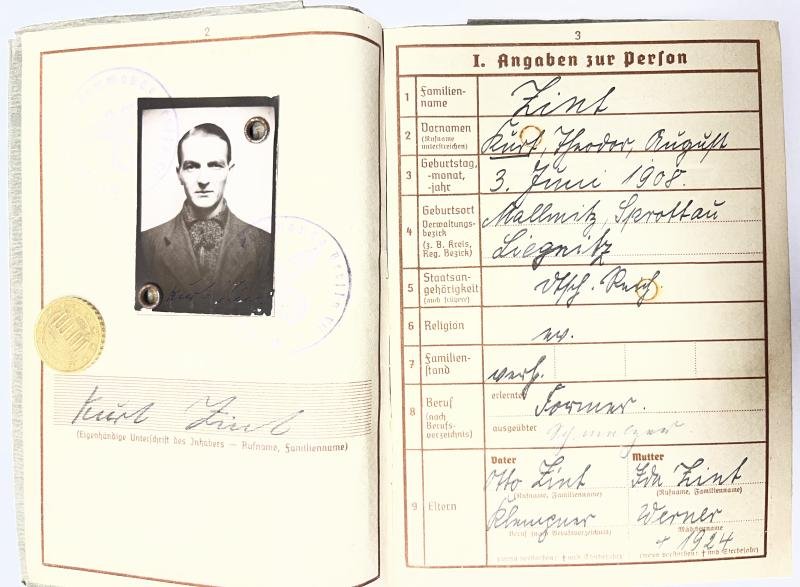 2
Kurt Zint
(Eigenhändige Unterschrift des Inhabers — Rufname, Familienname)
3
I. Angaben zur Person
1 Familien-
name
Zint
2 Vornamen
(Rufname
unterstreichen)
Kurt, Theodor, August
3 Geburtstag,
-monat,
-jahr
3. Juni 1908.
4 Geburtsort
Verwaltungs-
bezirk
(z. B. Kreis,
Reg. Bezirk)
Mallmitz, Sprottau
Liegnitz
5 Staatsan-
gehörigkeit
(auch frühere)
dtsch. Reich
6 Religion
ev.
7 Familien-
stand
verh.
8 Beruf
(nach
Berufs-
verzeichnis)
erlernter
Former.
ausgeübter
9 Eltern
Vater
Otto Zint
(Rufname, Familienname)
Klempner
Beruf (nach Berufsverzeichnis)
(wenn verstorben: † und Sterbejahr)
Mutter
Ida Zint
(Rufname, Familienname)
Werner
Mädchenname
† 1924
(wenn verstorben: † und Sterbejahr)